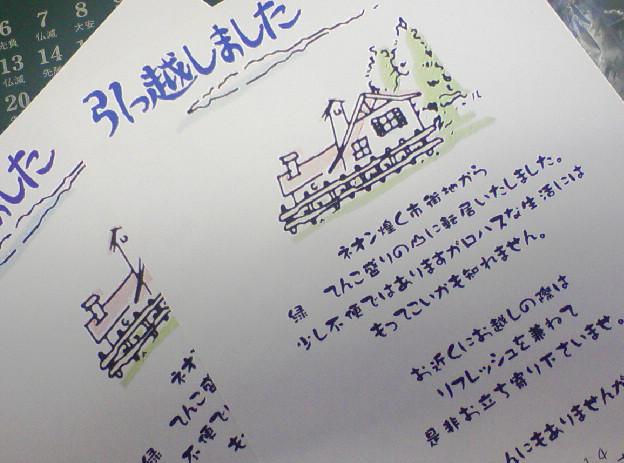 6 7 8
先負 仏滅 大安
13 14
仏滅
20
引っ越しました
ネオン煌く市街地から
緑てんこ盛りの山に転居いたしました。
少し不便ではありますがロハスな生活には
もってこいかも知れません。
お近くにお越しの際は
リフレッシュを兼ねて
是非お立ち寄り下さいませ。
んにもありませんが
14
ました
ネオ
緑てんこ盛
不便で
も